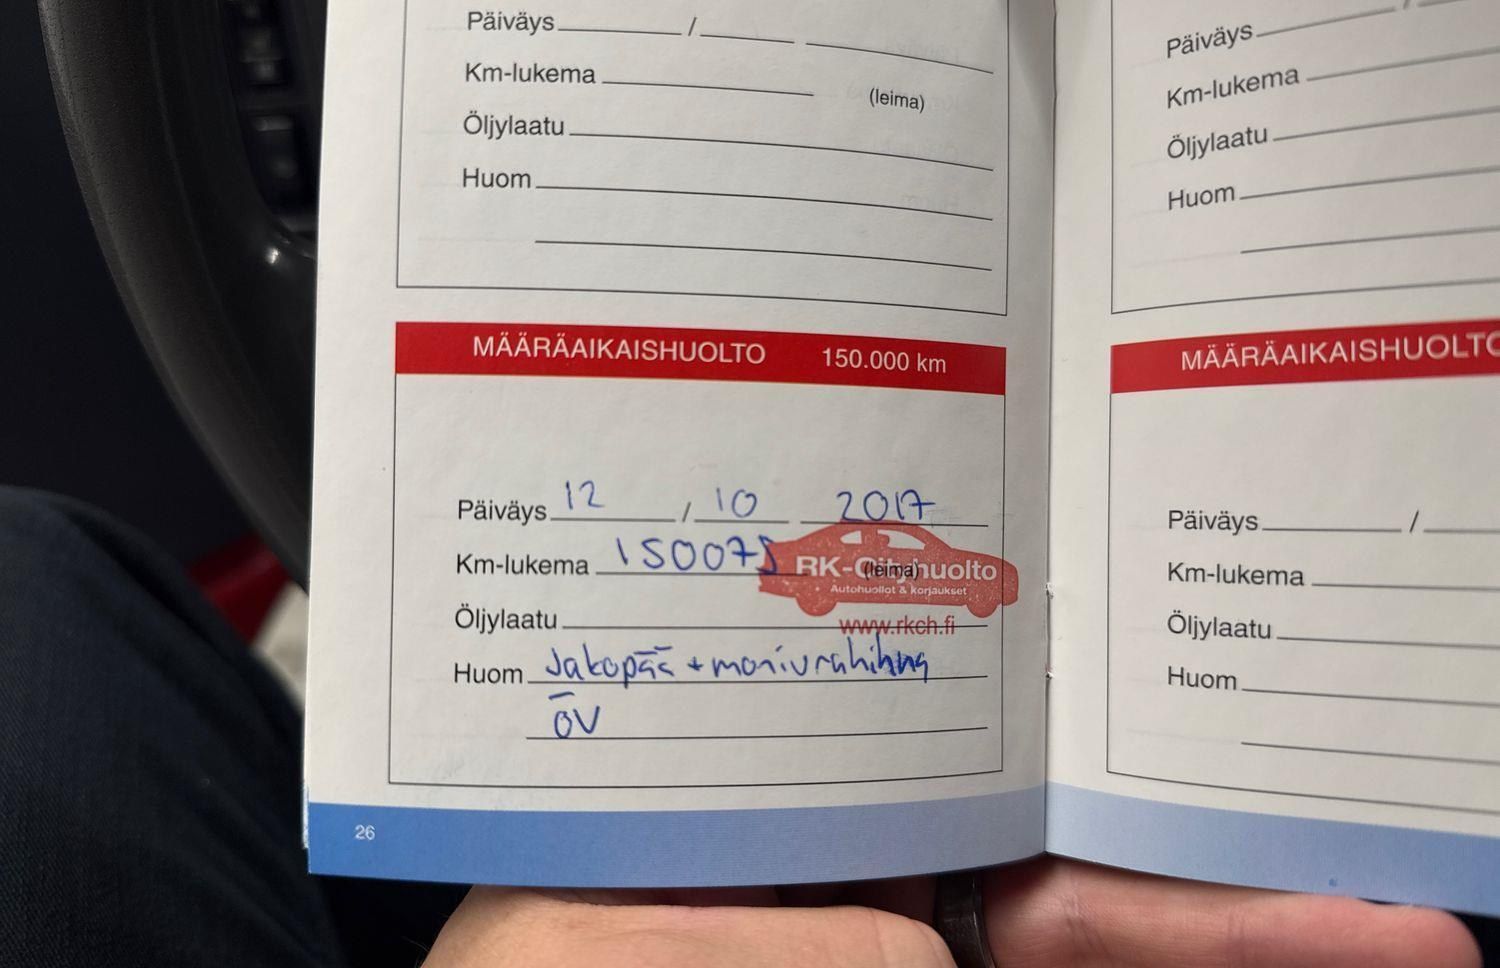 Päiväys / 
Km-lukema
(leima)
Öljylaatu
Huom
MÄÄRÄAIKAISHUOLTO 150.000 km
Päiväys 12 / 10 2017
Km-lukema 150075
RK-Cityhuolto
(leima)
Autohuollot & korjaukset
www.rkch.fi
Öljylaatu
Huom Jakopää + moniurahihna
ÖV
26
Päiväys /
Km-lukema
Öljylaatu
Huom
MÄÄRÄAIKAISHUOLTO
Päiväys /
Km-lukema
Öljylaatu
Huom